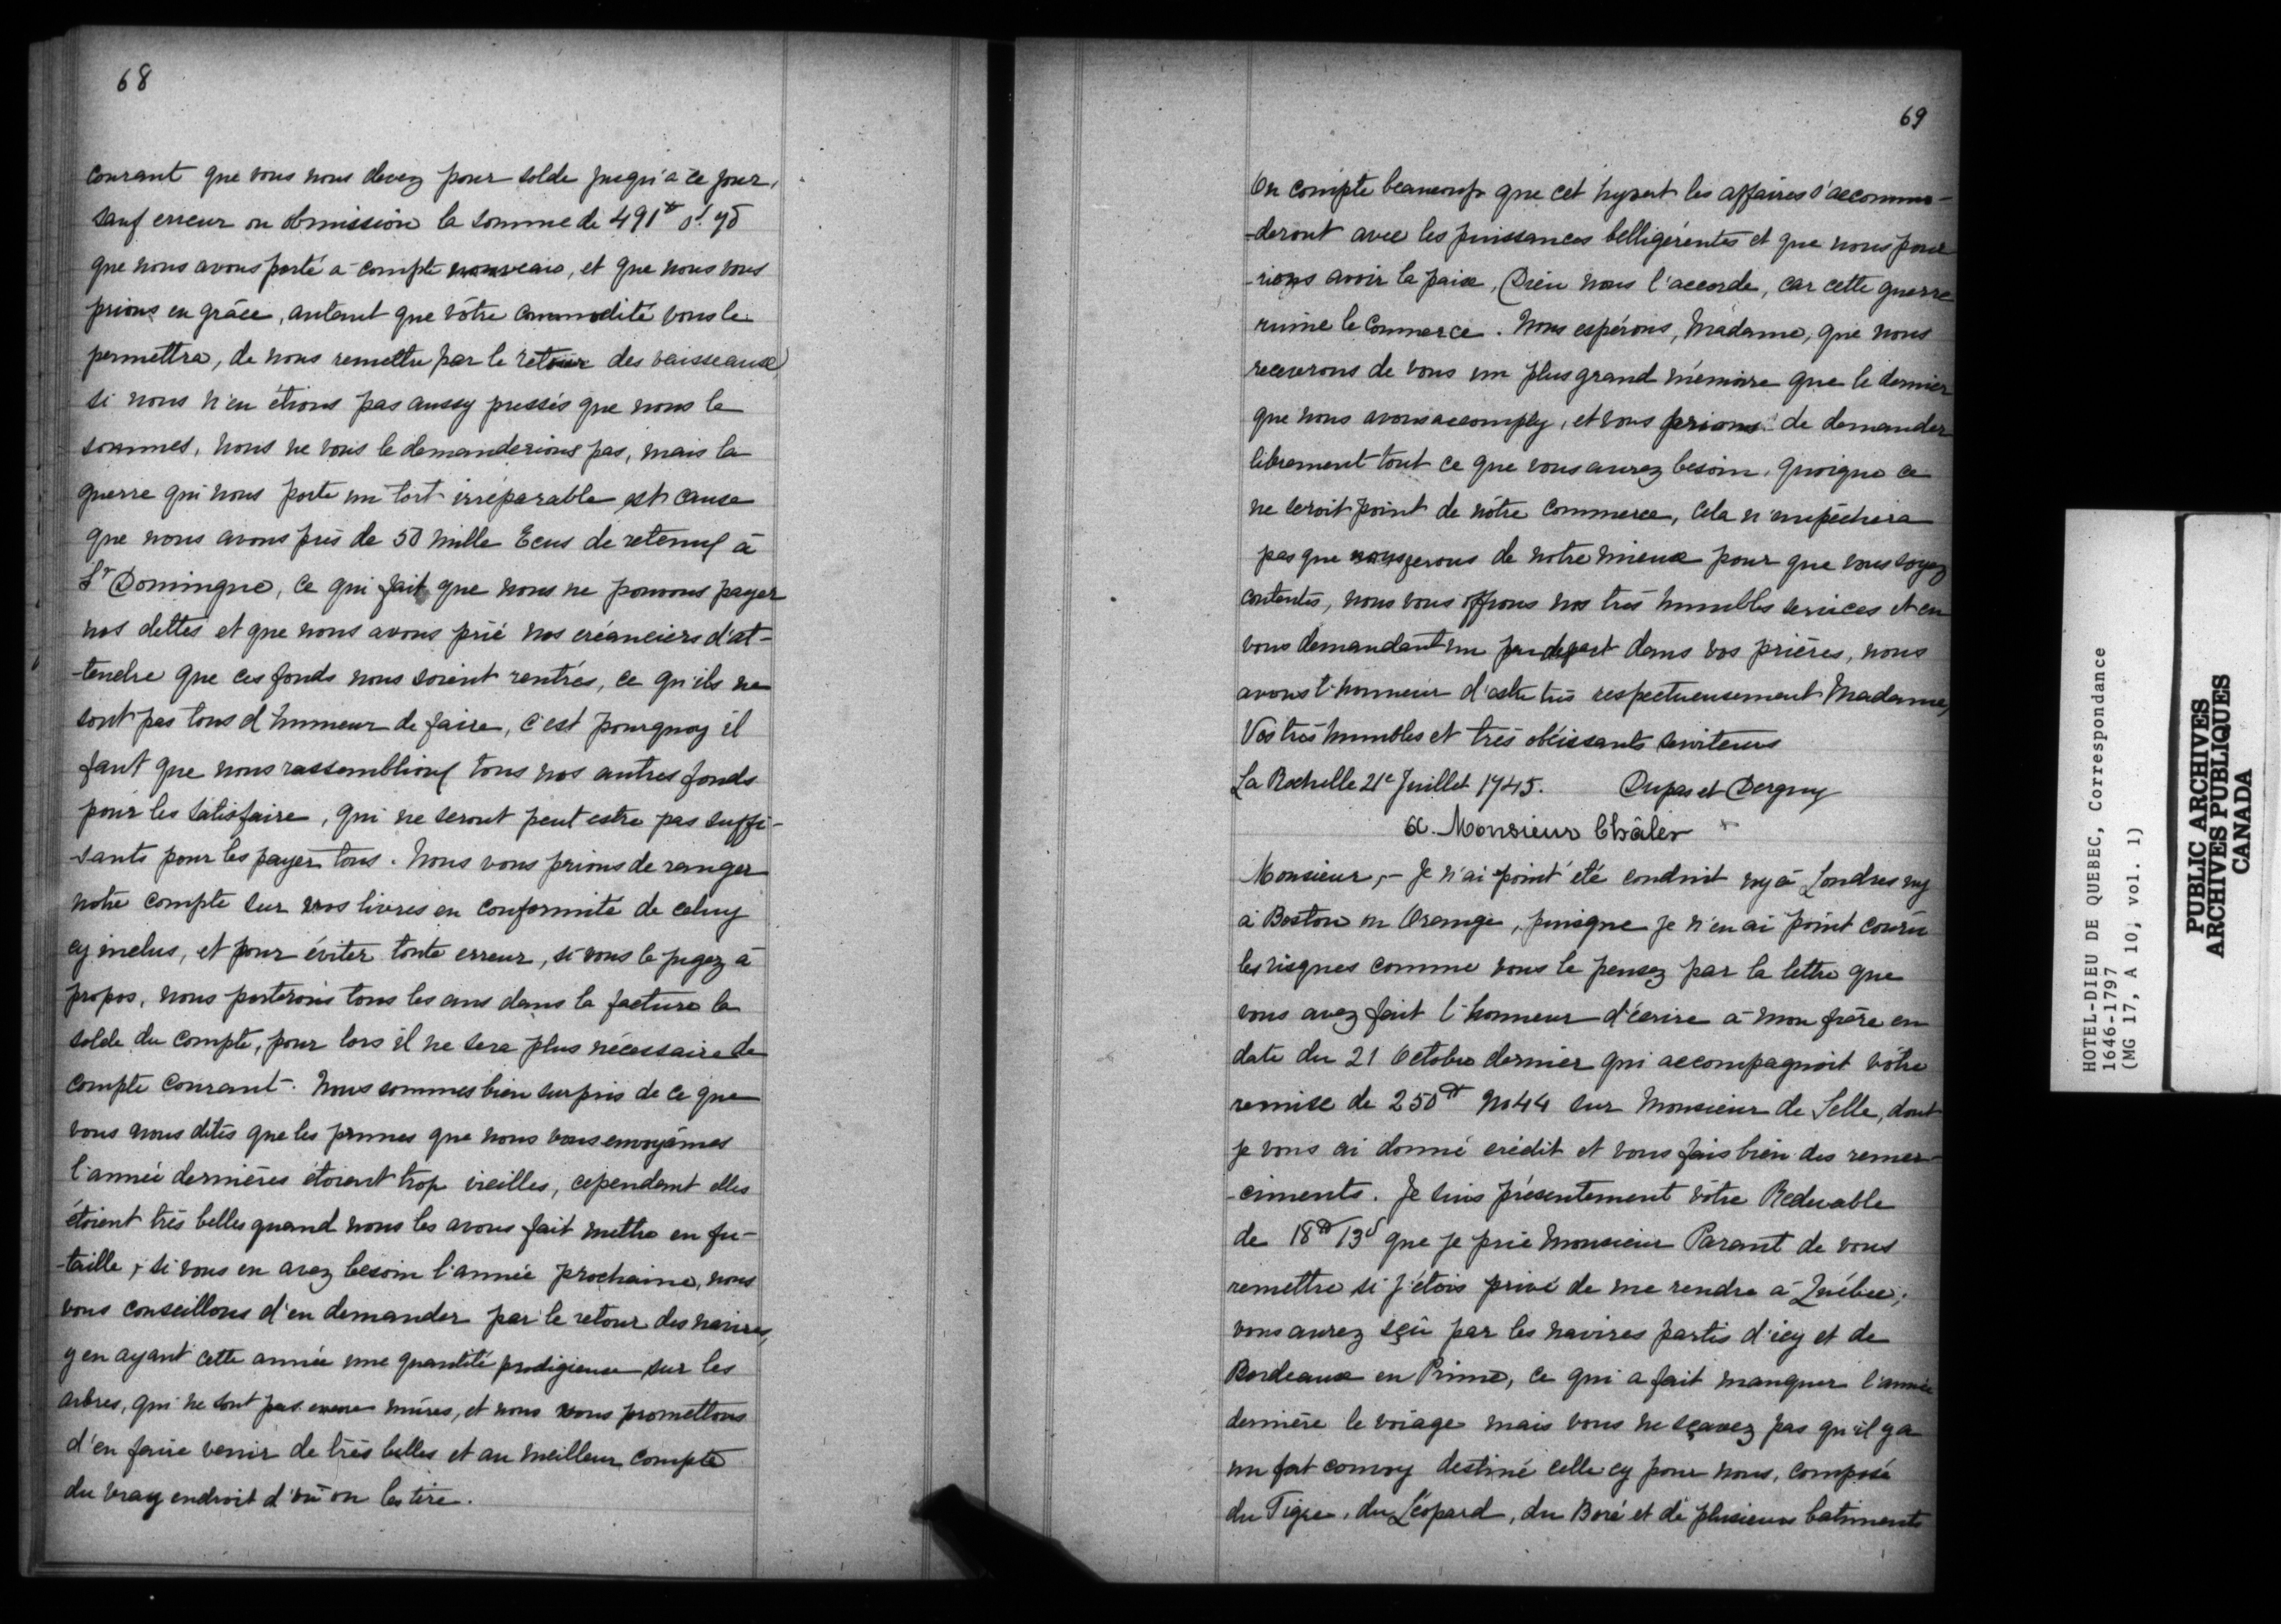 68
courant que vous nous devez pour solde jusqu'à ce jour,
sauf erreur ou obmission la somme de 491# 0s 7d
que nous avons porté à compte nouveau, et que nous vous
prions en grâce, autant que vôtre commodité vous le
permettra, de nous remettre par le retour des vaisseaux,
si nous n'en étions pas aussy pressés que nous le
sommes, nous ne vous le demanderions pas, mais la
guerre qui nous porte un tort irréparable est cause
que nous avons près de 50 mille Ecus de retenus à
St Domingue, ce qui fait que nous ne pouvons payer
nos dettes et que nous avons prié nos créanciers d'at-
-tendre que ces fonds nous soient rentrés, ce qu'ils ne
sont pas tous d'humeur de faire, c'est pourquoy il
faut que nous rassemblions tous nos autres fonds
pour les satisfaire, qui ne seront peut estre pas suffi-
-sants pour les payer tous. Nous vous prions de ranger
notre compte sur vos livres en conformité de celuy
cy inclus, et pour éviter toute erreur, si vous le jugez à
propos, nous porterons tous les ans dans la facture la
solde du compte, pour lors il ne sera plus nécessaire de
compte courant. Nous sommes bien surpris de ce que
vous nous dites que les prunes que nous vous envoyâmes
l'année dernières étoient trop vieilles, cependant elles
étoient très belles quand nous les avons fait mettre en fu-
-taille; si vous en avez besoin l'année prochaine, nous
vous conseillons d'en demander par le retour des navires,
y en ayant cette année une quantité prodigieuse sur les
arbres, qui ne sont pas encore mûres, et nous vous promettons
d'en faire venir de très belles et au meilleur compte
du vray endroit d'où on les tire.
69
On compte beaucoup que cet hyvert les affaires s'accommo-
-deront avec les puissances belligérentes et que nous pour
-rions avoir la paix, Dieu nous l'accorde, car cette guerre
ruine le Commerce. Nous espérons, Madame, que nous
recevrons de vous un plus grand mémoire que le dernier
que nous avons accomply, et vous prions de demander
librement tout ce que vous aurez besoin, quoique ce
ne seroit point de nôtre commerce, cela n'empêchera
pas que nous ferons de notre mieux pour que vous soyez
contentes, nous vous offrons nos très humbles services et en
vous demandant un peu de part dans vos prières, nous
avons l'honneur d'estre très respectueusement Madame,
Vos très humbles et très obéissants serviteurs
La Rochelle 21e Juillet 1745. Dupas et Derguy
À Monsieur Châler
Monsieur,- Je n'ai point été conduit ny à Londres ny
à Boston en Orange, puisque je n'en ai point couru
les risques comme vous le pensez par la lettre que
vous avez fait l'honneur d'écrire à mon frère en
date du 21 Octobre dernier qui accompagnoit vôtre
remise de 250# No 44 sur Monsieur de Selle, dont
je vous ai donné crédit et vous fais bien des remer-
-ciments. Je suis présentement vôtre Redevable
de 18# 13s que je prie Monsieur Parant de vous
remettre si j'étois privé de me rendre à Québec;
vous aurez sçû par les navires partis d'icy et de
Bordeaux en Prime, ce qui a fait manquer l'année
dernière le voiage mais vous ne sçavez pas qu'il y a
un fort convoy destiné celle cy pour nous, composé
du Tigre, du Léopard, du Boré et de plusieurs batiments
HOTEL-DIEU DE QUEBEC, Correspondance
1646-1797
(MG 17, A 10; vol. 1)
PUBLIC ARCHIVES
ARCHIVES PUBLIQUES
CANADA